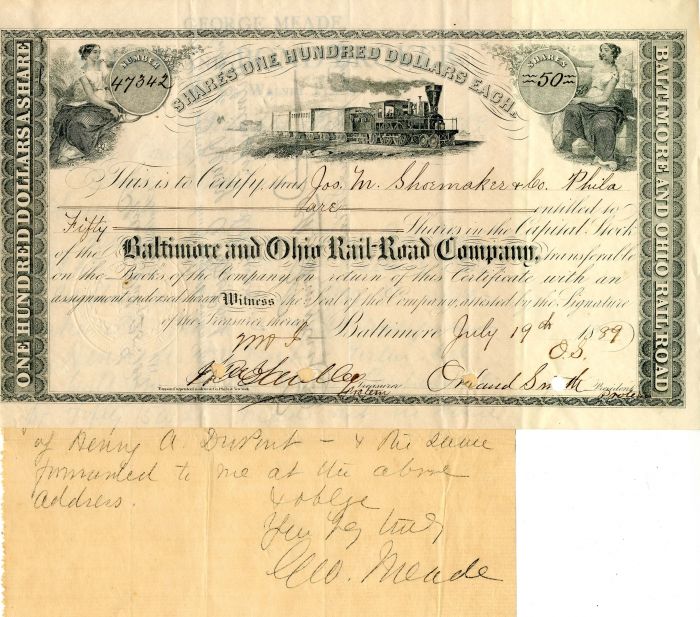 GEORGE MEADE
NUMBER
47342
SHARES ONE HUNDRED DOLLARS EACH.
SHARES
50
ONE HUNDRED DOLLARS A SHARE
BALTIMORE AND OHIO RAILROAD
This is to Certify, that Jos. M. Shoemaker & Co. Phila
are entitled to
Fifty Shares in the Capital Stock
of the Baltimore and Ohio Rail-Road Company, transferable
on the Books of the Company on return of this Certificate with an
assignment endorsed thereon Witness the Seal of the Company, attested by the Signature
of the Treasurer thereof Baltimore July 19th 1889
O.S.
Treasurer
Protem
Orland Smith President
Protem
of Henry A. DuPont - & the same
forwarded to me at the above
address.
& oblige
Geo. Meade